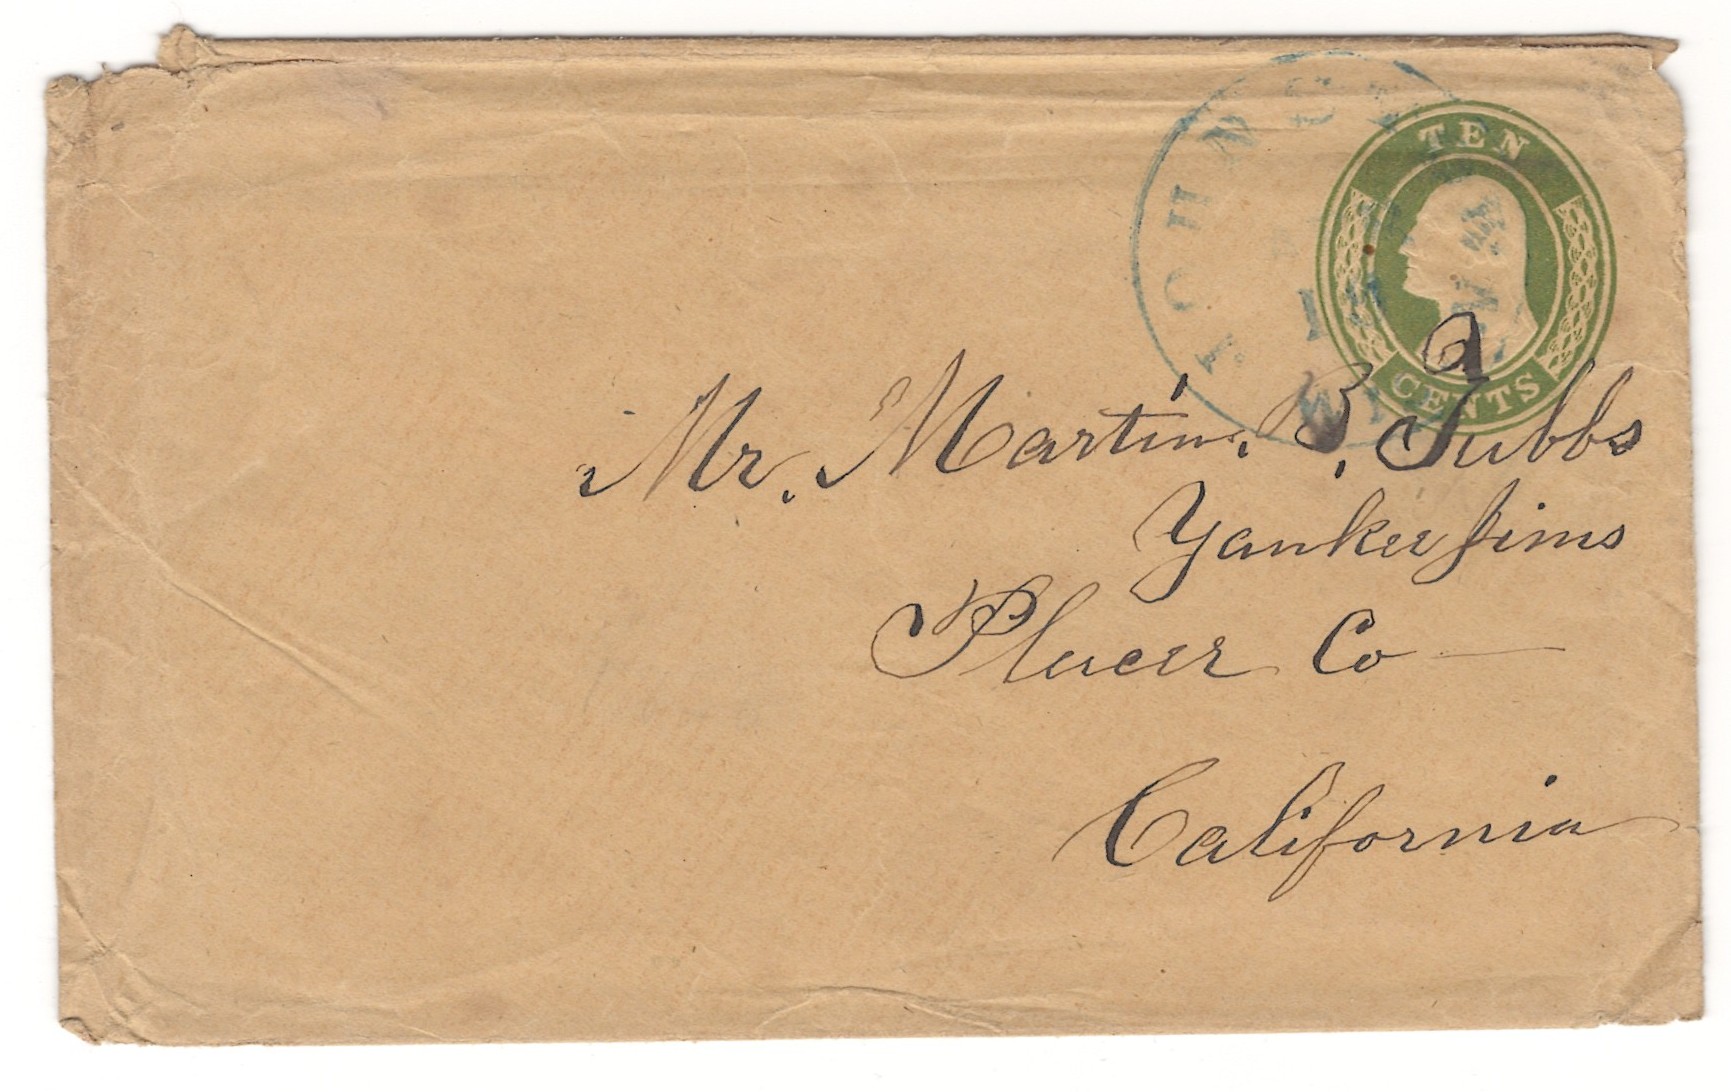 TEN
CENTS
Mr. Martin B. Tubbs
Yankee Jims
Placer Co
California